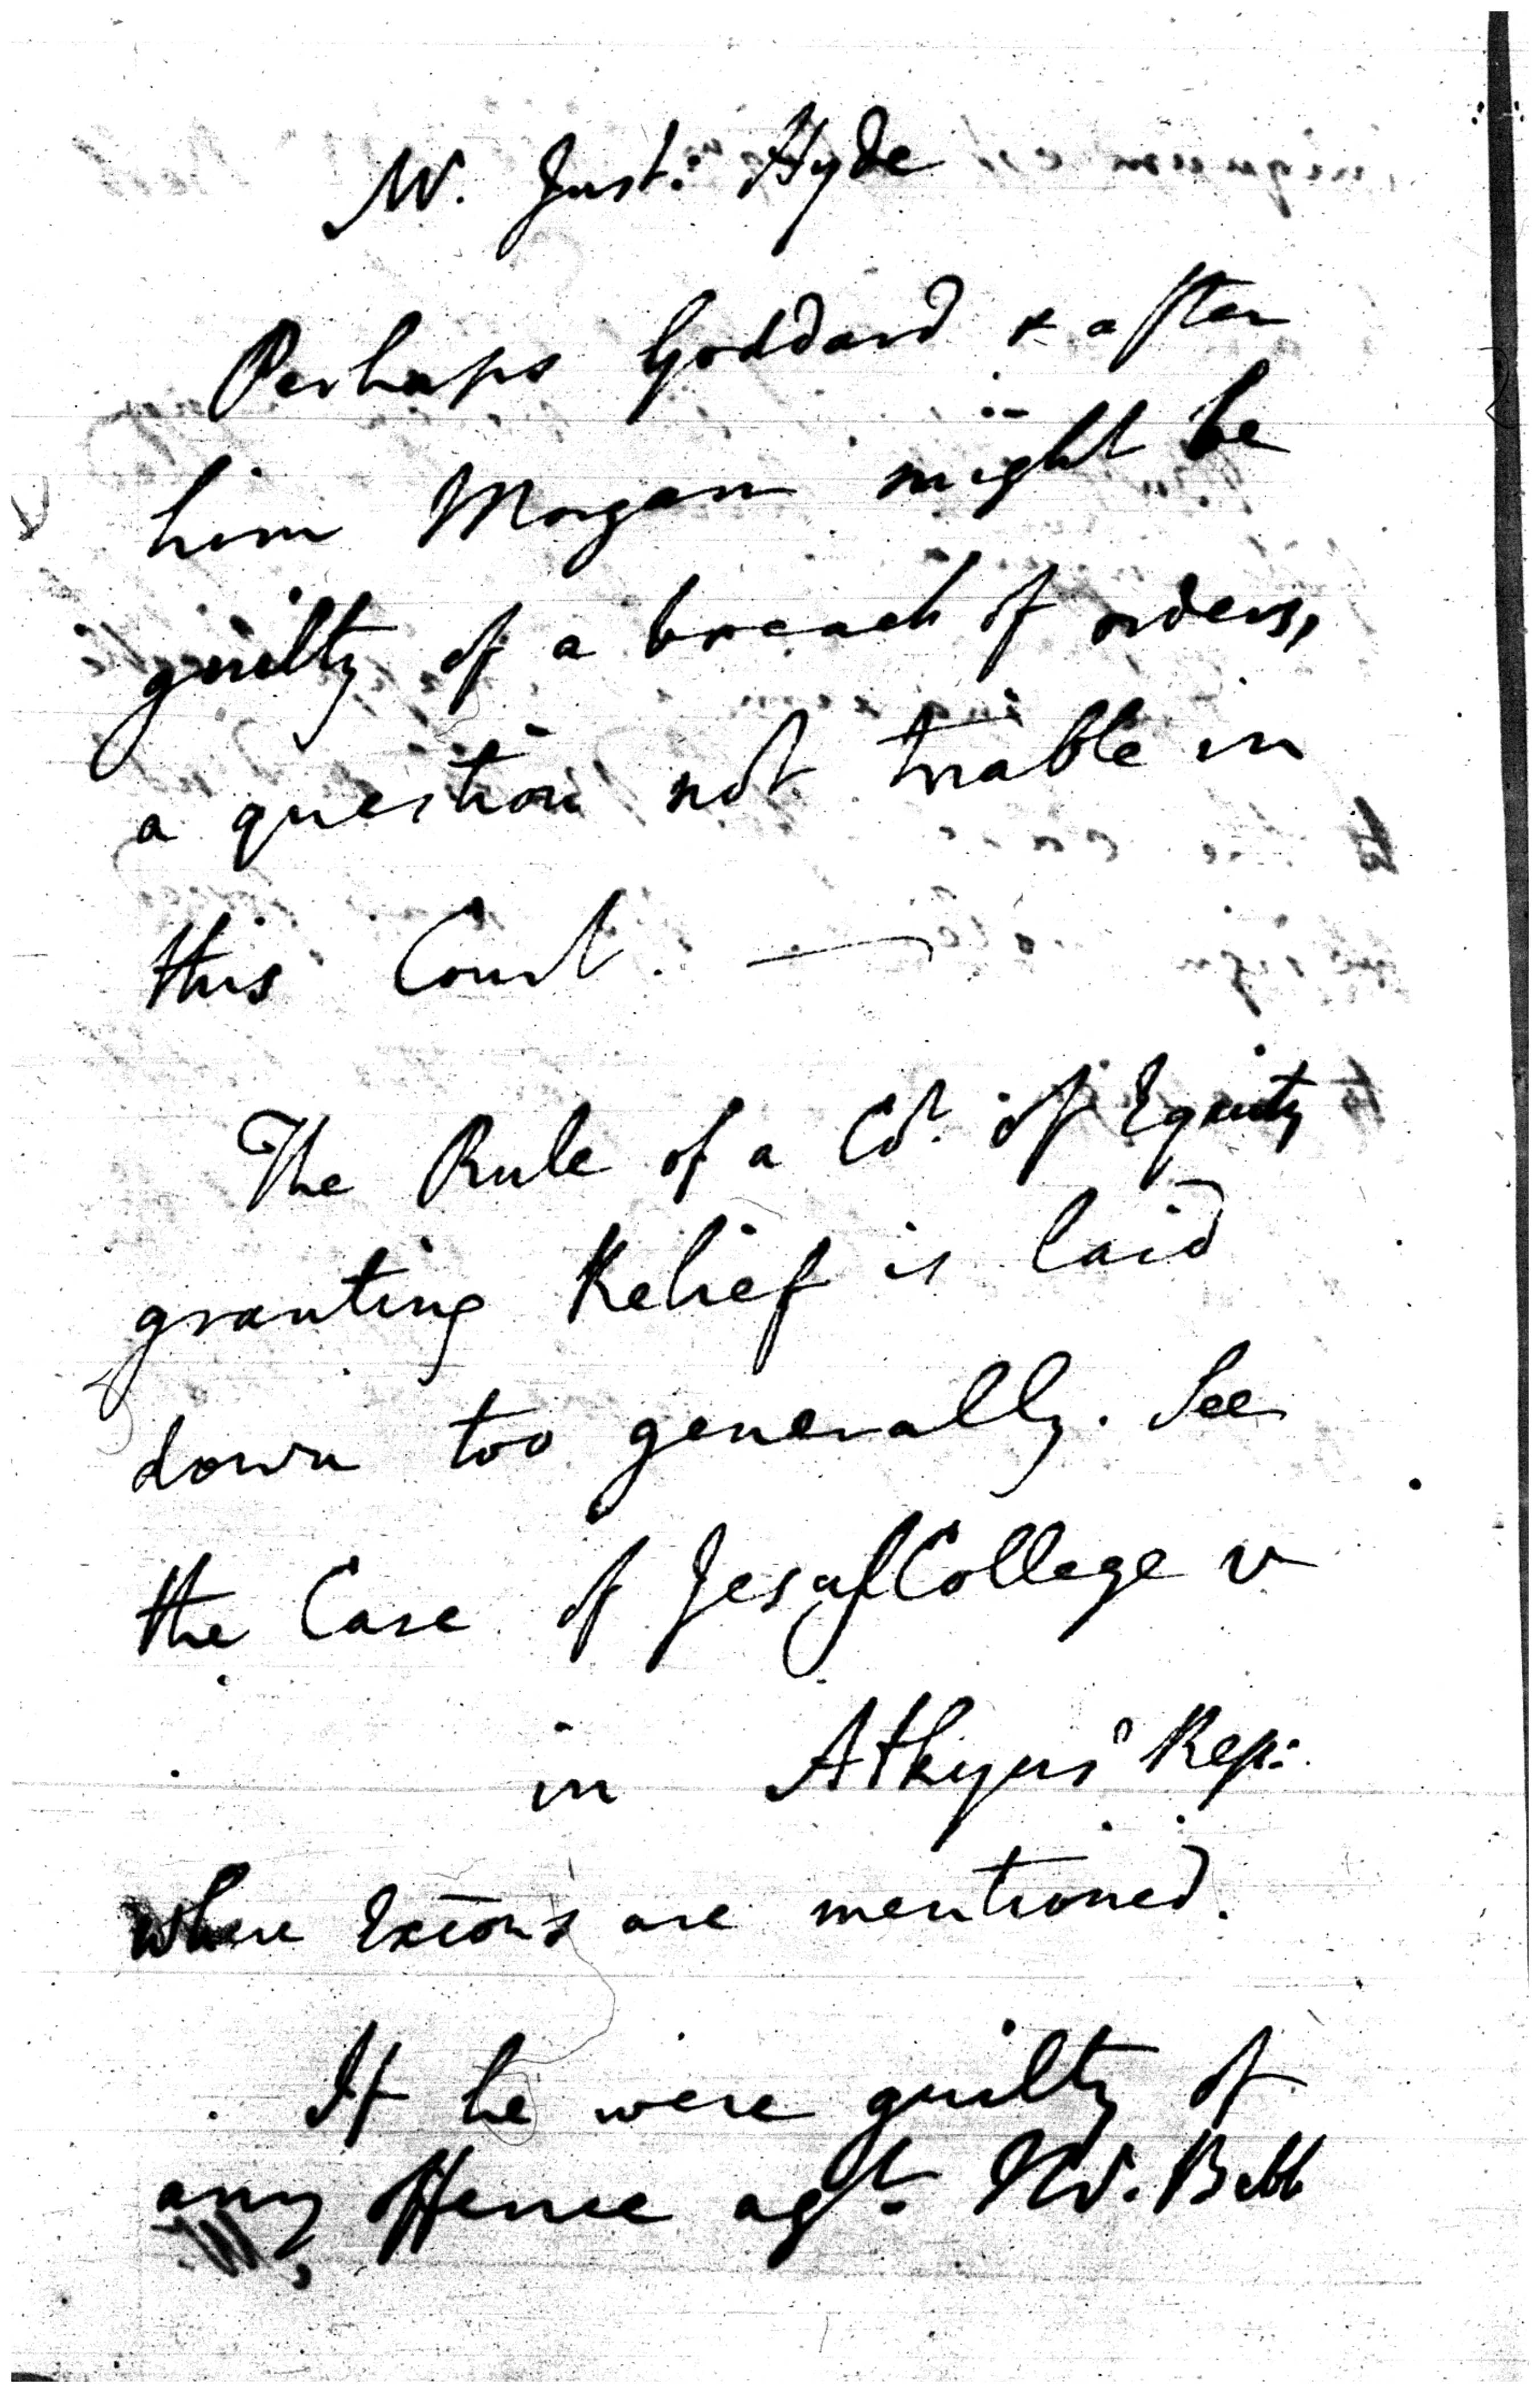 Mr. Just: Hyde
Perhaps Goddard & after
him Morgan might be
guilty of a breach of orders,
a question not triable in
this Court. —
The Rule of a Ct. of Equity
granting Relief is laid
down too generally. See
the Case of Jesus College v
in Atkyns' Rep:
where Exc̄ons are mentioned.
If he were guilty of
any Offence agt. Mr. Bebb